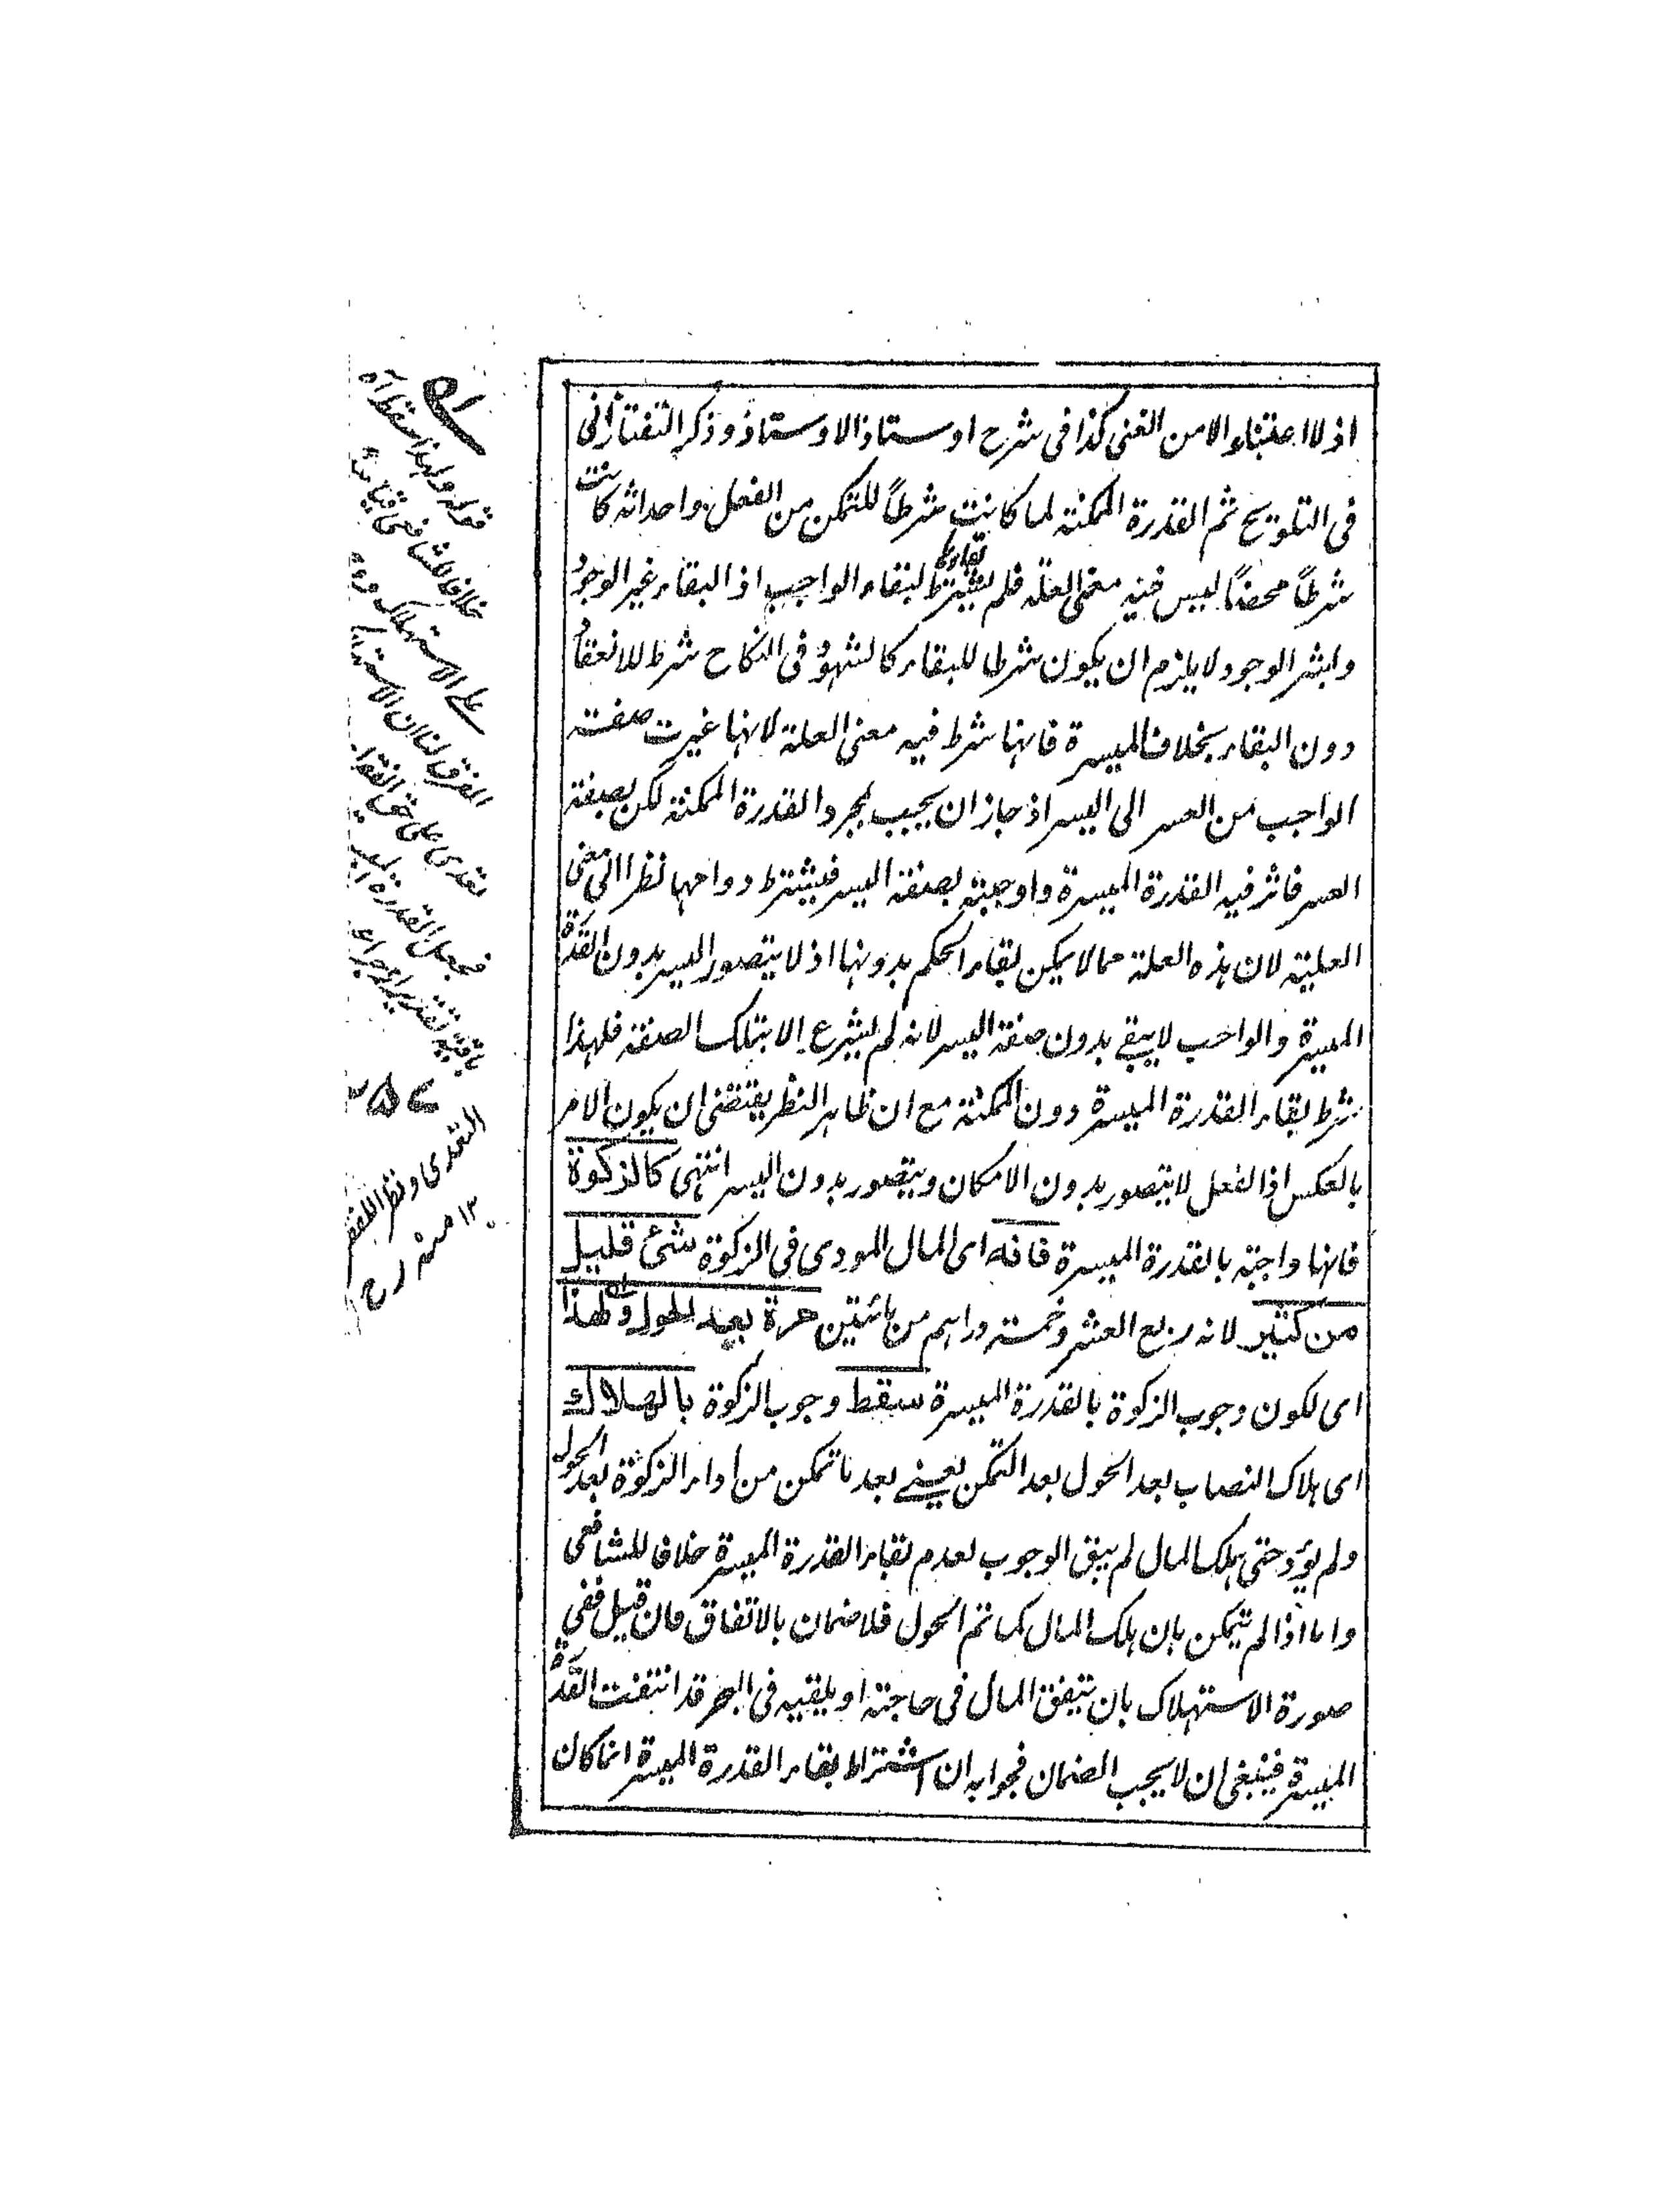 اذ لا اغتناء الا من الغنى كذا فى شرح اوستاذ الاوستاذ وذكر التفتازانى
فى التلويح ثم القدرة الممكنة لما كانت شرطاً للتمكن من الفعل واحداثه كانت
شرطاً محضاً ليس فيه معنى العلة فلم يشترط بقاءها لبقاء الواجب اذ البقاء غير الوجود
وشرط الوجود لا يلزم ان يكون شرطا للبقاء كالشهود فى النكاح شرط للانعقاد
دون البقاء بخلاف الميسرة فانها شرط فيه معنى العلة لانها غيرت صفته
الواجب من العسر الى اليسر اذ جاز ان يجب بمجرد القدرة الممكنة لكن بصفة
العسر فاثر فيه القدرة الميسرة واوجبته بصفة اليسر فيشترط دوامها نظرا الى معنى
العلية لان هذه العلة مما لا يمكن بقاء الحكم بدونها اذ لا يتصور اليسر بدون القدرة
الميسرة والواجب لا يبقى بدون صفة اليسر لانه لم يشرع الا بتلك الصفة فلهذا
شرط بقاء القدرة الميسرة دون الممكنة مع ان ظاهر النظر يقتضى ان يكون الامر
بالعكس اذ الفعل لا يتصور بدون الامكان ويتصور بدون اليسر انتهى كالزكوة
فانها واجبة بالقدرة الميسرة فانه اى المال المودى فى الزكوة شئ قليل
من كثير لانه ربع العشر وخمسة دراهم من مائتين مرة بعد الحول ولهذا
اى لكون وجوب الزكوة بالقدرة الميسرة سقط وجوب الزكوة بالهلاك
اى هلاك النصاب بعد الحول بعد التمكن يعنى بعد ما تمكن من اداء الزكوة بعد الحول
ولم يؤد حتى هلك المال لم يبق الوجوب لعدم بقاء القدرة الميسرة خلافا للشافعى
واما اذا لم يتمكن بان هلك المال كما تم الحول فلا ضمان بالاتفاق فان قيل ففى
صورة الاستهلاك بان ينفق المال فى حاجته او يلقيه فى البحر قد انتفت القدرة
الميسرة فينبغى ان لا يجب الضمان فجوابه ان اشتراط بقاء القدرة الميسرة انما كان
قوله ولهذا سقط آه
خلافا للشافعى
على الاستهلاك
الفرق لنا ان
تعدى على حق الفقراء
فجعل القدرة
باقية تقديرا
التعدى ونظرا للفقر
١٢ منه رح